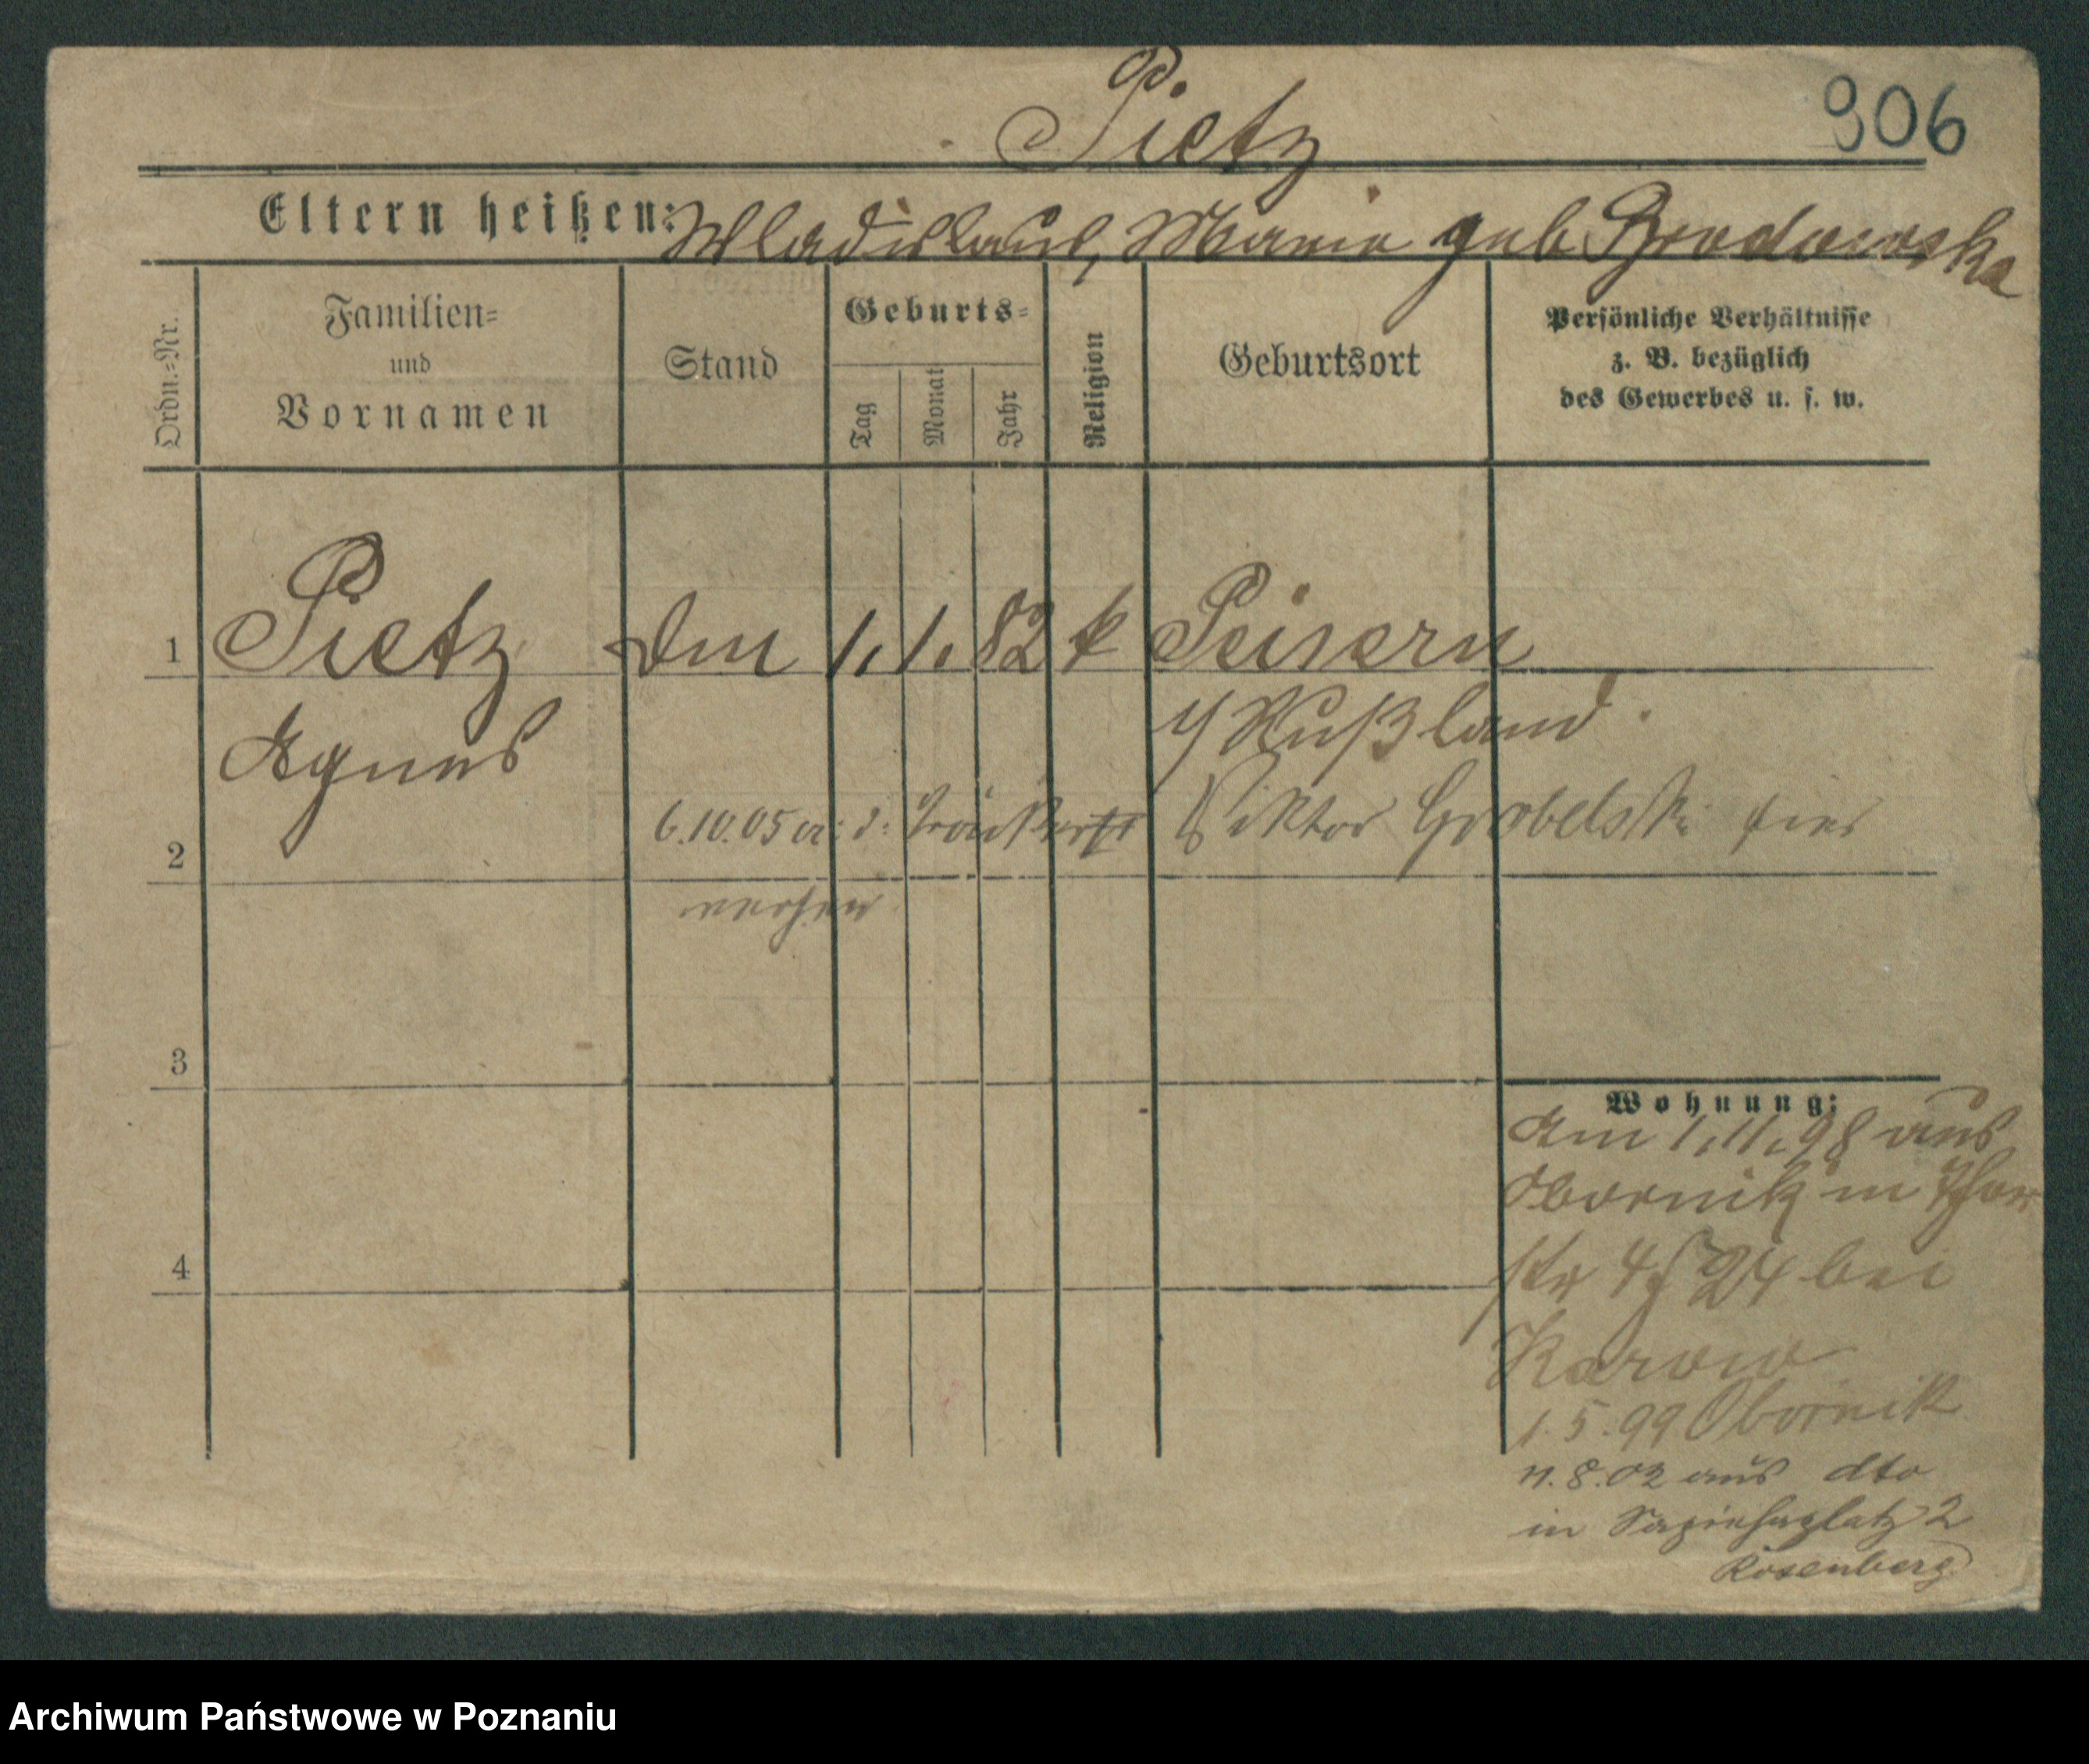 Pietz
906
Eltern heißen: Wladislaus, Maria geb Brodowska
Ordn.-Nr.
Familien-
und
Vornamen
Stand
Geburts-
Tag
Monat
Jahr
Religion
Geburtsort
Persönliche Verhältnisse
z. B. bezüglich
des Gewerbes u. s. w.
1 Pietz 1. 1. 82 k Peisern
Agnes
Rußland
2
6.10.05 Viktor Grobelski hier
3
Wohnung:
Am 1.11.98 aus
Obornik in
4
str 24 bei
1.5.99 Obornik
11.8.02 aus dto
in Sapiehaplatz 2
Rosenberg
Archiwum Państwowe w Poznaniu